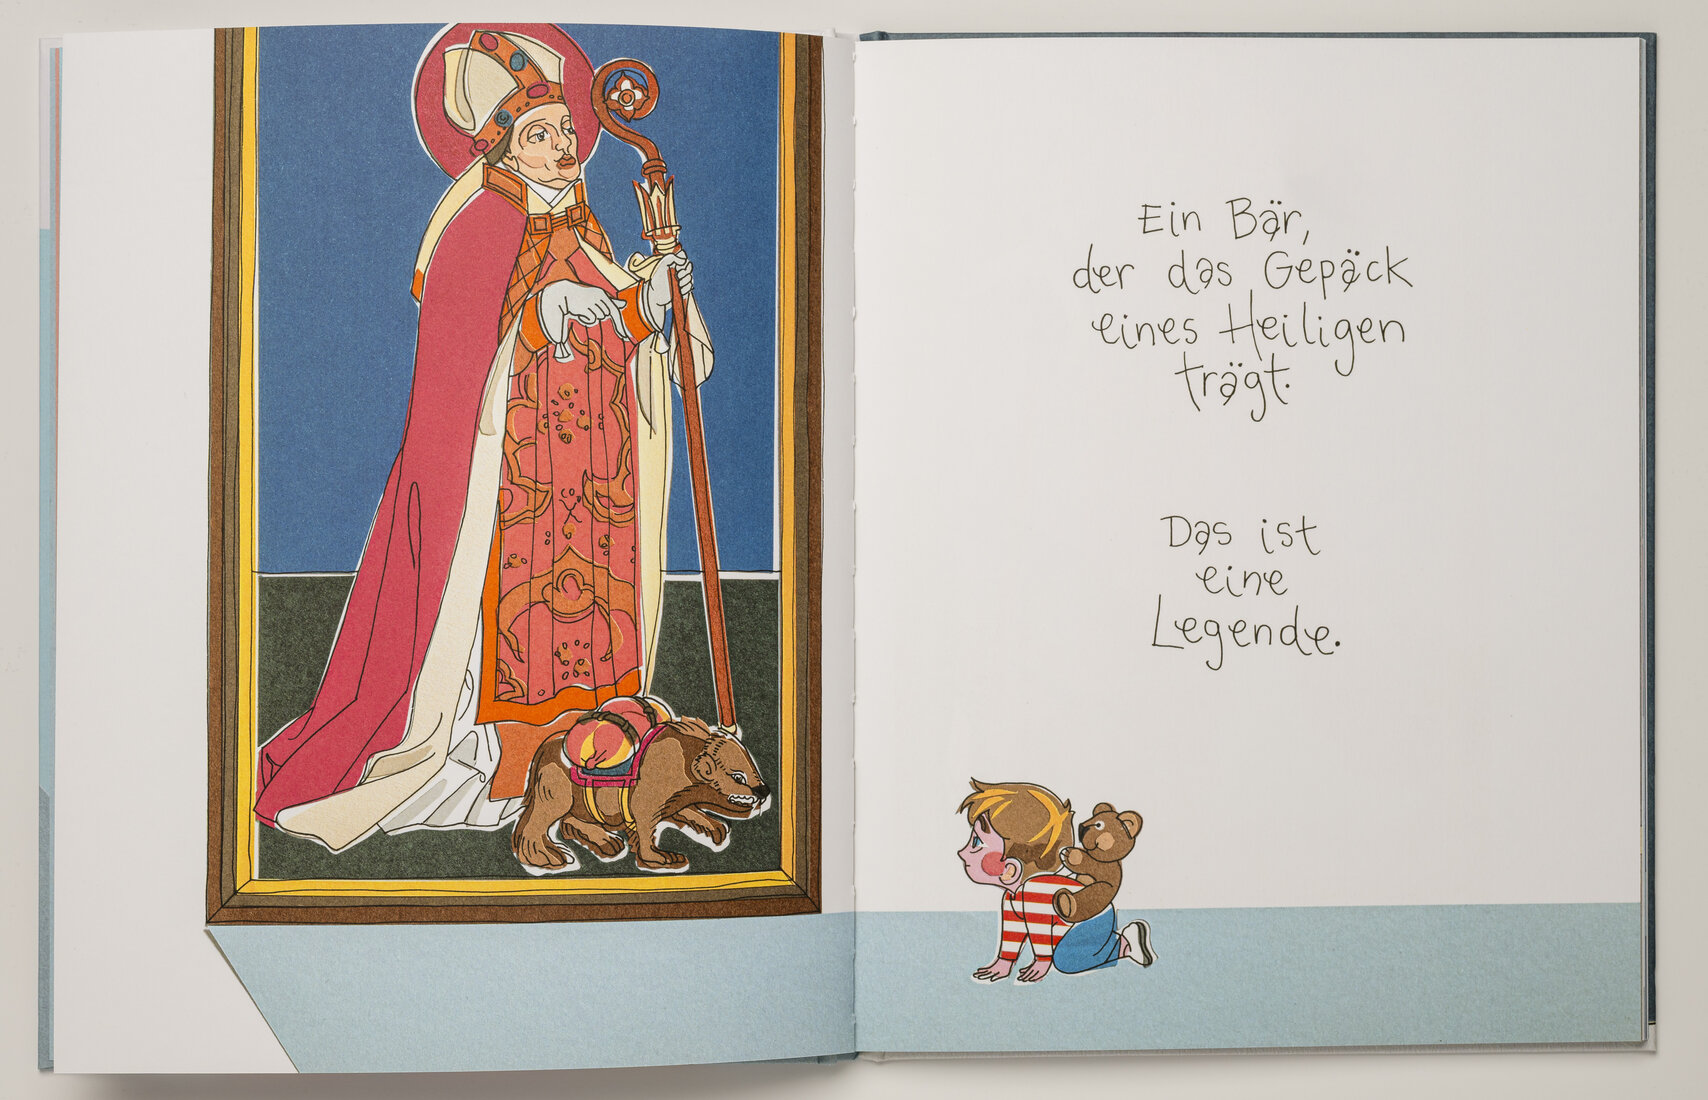 Ein Bär,
der das Gepäck
eines Heiligen
trägt.
Das ist
eine
Legende.